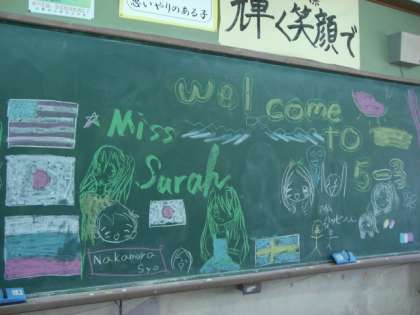 思いやりのある子
輝く笑顔で
Welcome
Miss
to
Sarah
5-3
Nakamura
Syo